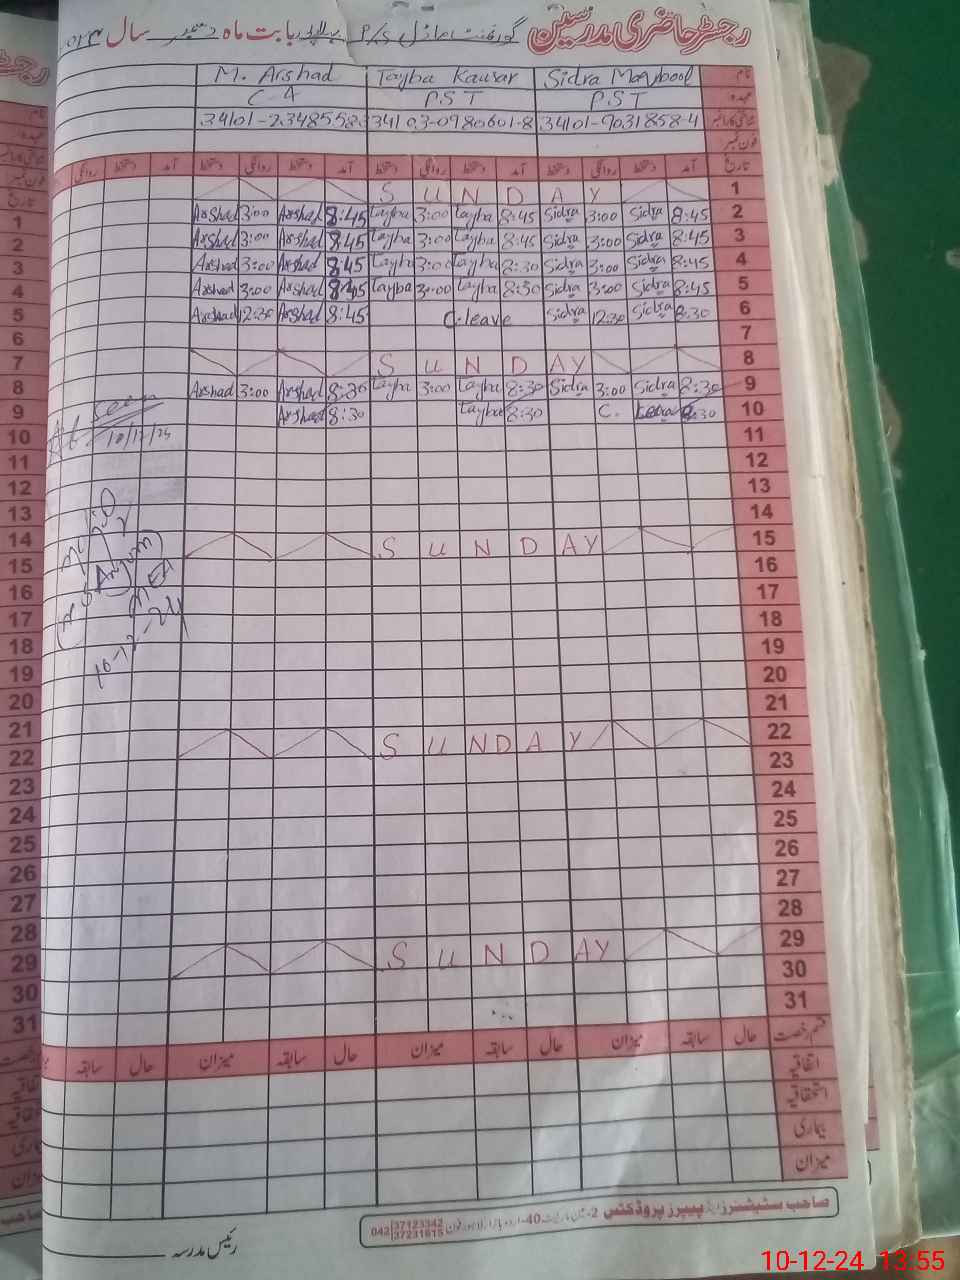 رجسٹر حاضری مدرسین گورنمنٹ ماڈل P/S بابت ماہ دسمبر سال 2024
نام Sidra Maqbool Tayba Kausar M. Arshad
عہدہ PST P.S.T C-4
34101-9031858-4 34103-0980601-8 34101-2348558
فون نمبر
تاریخ آمد دستخط روانگی دستخط آمد دستخط روانگی دستخط آمد دستخط روانگی دستخط آمد دستخط روانگی
S U N D A Y 1
Arshad 3:00 Arshad 8:45 Tayba 3:00 Tayba 8:45 Sidra 3:00 Sidra 8:45 2
Arshad 3:00 Arshad 8:45 Tayba 3:00 Tayba 8:45 Sidra 3:00 Sidra 8:45 3
Arshad 3:00 Arshad 8:45 Tayba 3:00 Tayba 8:30 Sidra 3:00 Sidra 8:45 4
Arshad 3:00 Arshad 8:45 Tayba 3:00 Tayba 8:30 Sidra 3:00 Sidra 8:45 5
Arshad 12:30 Arshad 8:45 C.leave Sidra 12:30 Sidra 8:30 6
7
S U N D A Y 8
Arshad 3:00 Arshad 8:30 Tayba 3:00 Tayba 8:30 Sidra 3:00 Sidra 8:30 9
Arshad 8:30 Tayba 8:30 C. 8:30 10
seen
10/12/24
11
12
13
14
S U N D A Y 15
(Anjum)
MEA
10-12-24
16
17
18
19
20
21
S U N D A Y 22
23
24
25
26
27
28
S U N D A Y 29
30
31
قسم رخصت حال سابقہ میزان حال سابقہ میزان حال سابقہ میزان حال سابقہ
اتفاقیہ
استحقاقیہ
بیماری
میزان
صاحب سٹیشنرز اینڈ پیپرز پروڈکٹس 2- 40-اردو بازار لاہور فون 042 37123342 37231615
رئیس مدرسہ
10-12-24 13:55